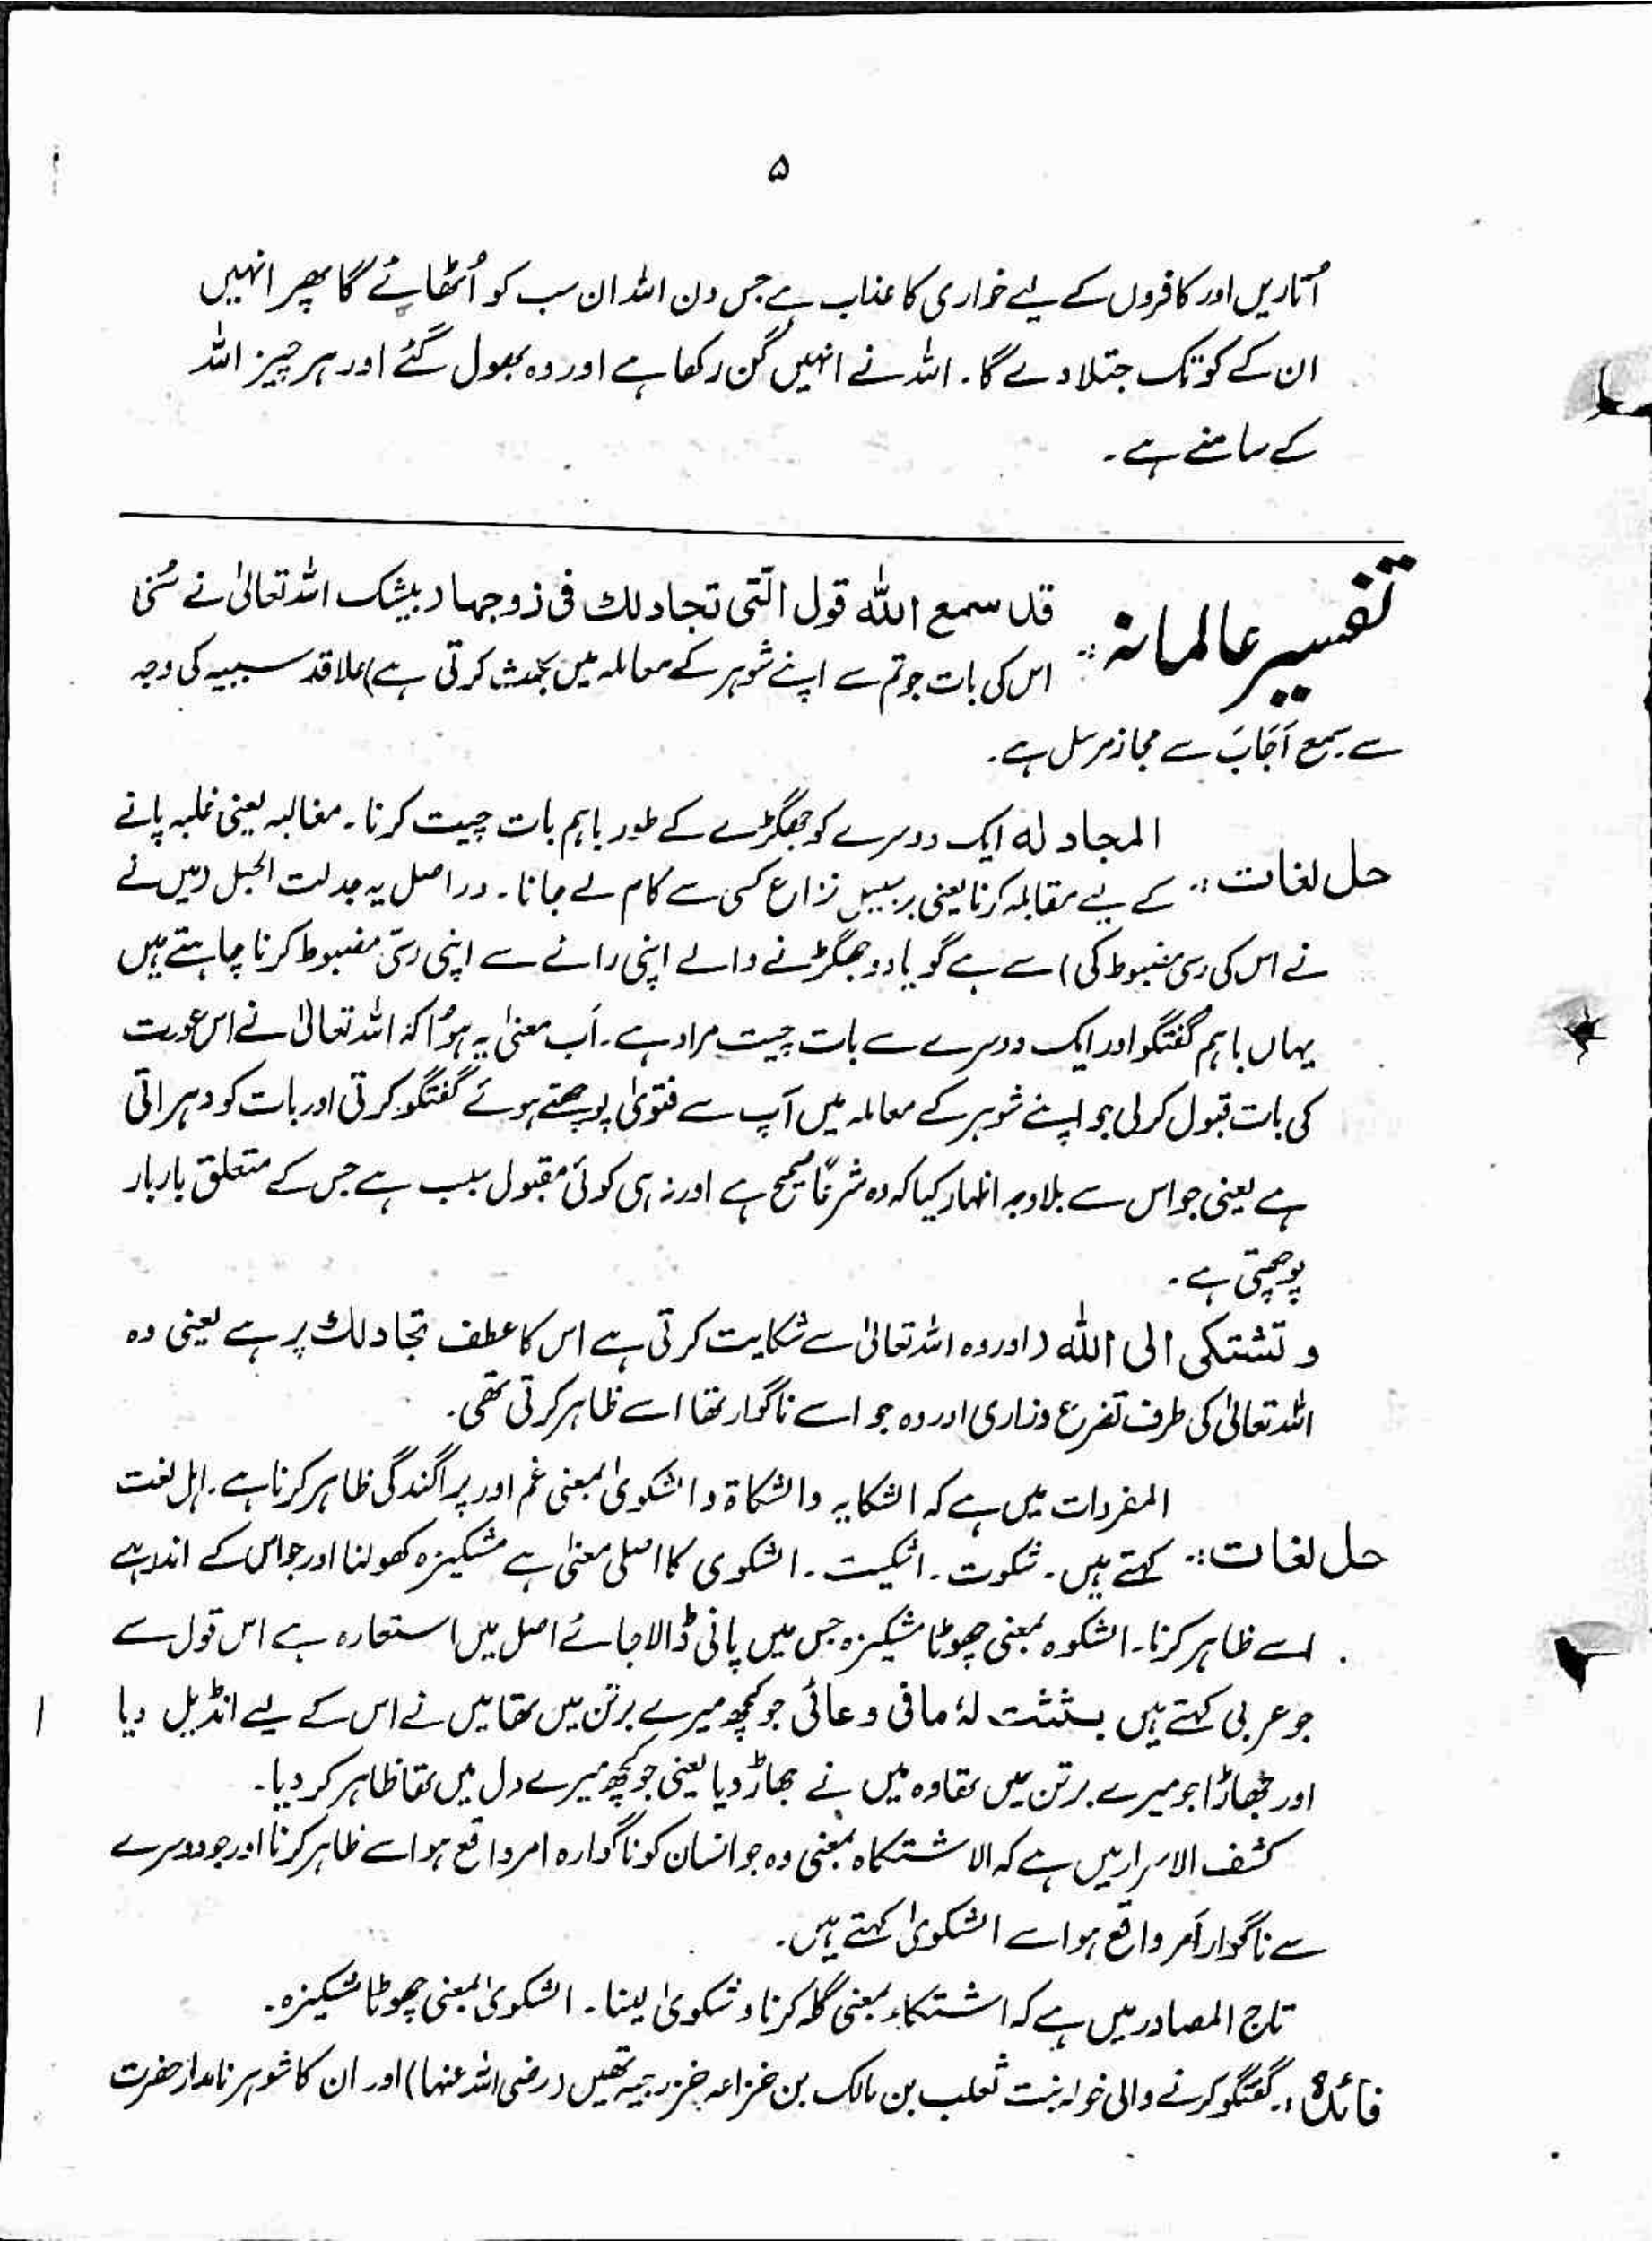 ۵
اُتاریں اور کافروں کے لیے خواری کا عذاب ہے جس دن اللہ ان سب کو اُٹھائے گا پھر انہیں
ان کے کوتک جتلا دے گا۔ اللہ نے انہیں گن رکھا ہے اور وہ بھول گئے اور ہر چیز اللہ
کے سامنے ہے۔
تفسیر عالمانہ :: قد سمع اللہ قول التی تجادلك فی زوجھا (بیشک اللہ تعالیٰ نے سُنی
اس کی بات جو تم سے اپنے شوہر کے معاملہ میں بحث کرتی ہے) علاقہ سببیہ کی وجہ
سے سمع اَجَابَ سے مجاز مرسل ہے۔
المجادلہ ایک دوسرے کو جھگڑے کے طور باہم بات چیت کرنا۔ مغالبہ یعنی غلبہ پانے
حل لغات :: کے لیے مقابلہ کرنا یعنی بر سبیل نزارع کسی سے کام لے جانا۔ دراصل یہ جدلت الحبل (میں نے
نے اس کی رسی مضبوط کی) سے ہے گویا دو جھگڑنے والے اپنی رائے سے اپنی رسّی مضبوط کرنا چاہتے ہیں
یہاں باہم گفتگو اور ایک دوسرے سے بات چیت مراد ہے۔ اَب معنیٰ یہ ہوُا کہ اللہ تعالیٰ نے اس عورت
کی بات قبول کر لی جو اپنے شوہر کے معاملہ میں آپ سے فتویٰ پوچھتے ہوئے گفتگو کرتی اور بات کو دہراتی
ہے یعنی جو اس سے بلاوجہ اظہار کیا کہ وہ شرعًا صحیح ہے اور نہ ہی کوئی مقبول سبب ہے جس کے متعلق باربار
پوچھتی ہے۔
و تشتکی الی اللہ (اور وہ اللہ تعالیٰ سے شکایت کرتی ہے اس کا عطف تجادلك پر ہے یعنی وہ
اللہ تعالیٰ کی طرف تضرع وزاری اور وہ جو اسے ناگوار تھا اسے ظاہر کرتی تھی۔
المفردات میں ہے کہ الشکایہ والشکاۃ والشکویٰ بمعنی غم اور پراگندگی ظاہر کرنا ہے۔ اہل لغت
حل لغات :: کہتے ہیں۔ شکوت۔ اشکیت۔ الشکوی کا اصلی معنیٰ ہے مشکیزہ کھولنا اور جو اس کے اندر ہے
اسے ظاہر کرنا۔ الشکوہ بمعنی چھوٹا مشکیزہ جس میں پانی ڈالا جائے اصل میں استعارہ ہے اس قول سے
جو عربی کہتے ہیں بثثت لہٗ مافی وعائی جو کچھ میرے برتن میں تھا میں نے اس کے لیے انڈیل دیا
اور جھاڑا جو میرے برتن میں تھا وہ میں نے جھاڑ دیا یعنی جو کچھ میرے دل میں تھا ظاہر کر دیا۔
کشف الاسرار میں ہے کہ الاشتکاہ بمعنی وہ جو انسان کو ناگوارہ امر واقع ہو اسے ظاہر کرنا اور جو دوسرے
سے ناگوار اَمر واقع ہو اسے الشکویٰ کہتے ہیں۔
تاج المصادر میں ہے کہ اشتکاء بمعنی گلہ کرنا و شکویٰ لینا۔ الشکویٰ بمعنی چھوٹا مشکیزہ۔
فائدہ :۔ گفتگو کرنے والی خولہ بنت ثعلب بن مالک بن خزاعہ خزرجیہ تھیں (رضی اللہ عنہا) اور ان کا شوہر نامدار حضرت